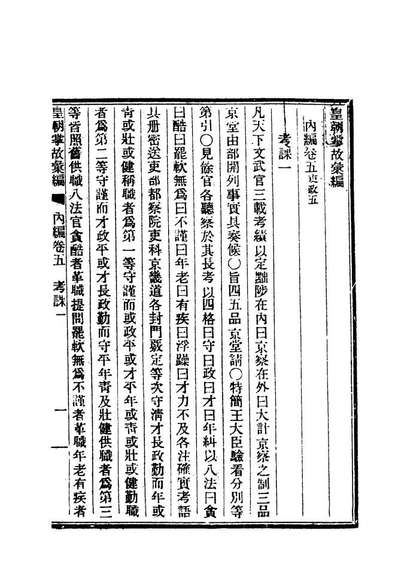 皇朝掌故彙編
內編卷五吏政五
考課一
凡天下文武官三載考績以定黜陟在內曰京察在外曰大計京察之制三品
京堂由部開列事實具奏候〇旨四五品京堂請〇特簡王大臣驗看分別等
第引〇見餘官各聽察於其長考以四格曰守曰政曰才曰年糾以八法曰貪
曰酷曰罷軟無爲曰不謹曰年老曰有疾曰浮躁曰才力不及各注確實考語
具册密送吏部都察院吏科京畿道各封門覈定等次守清才長政勤而年或
靑或壯或健稱職者爲第一等守謹而或政平或才平年或靑或壯或健勤職
者爲第二等守謹而才政平或才長政勤而守平年靑及壯健供職者爲第三
等皆照舊供職八法官貪酷者革職提問罷軟無爲不謹者革職年老有疾者
皇朝掌故彙編
內編卷五 考課一
一